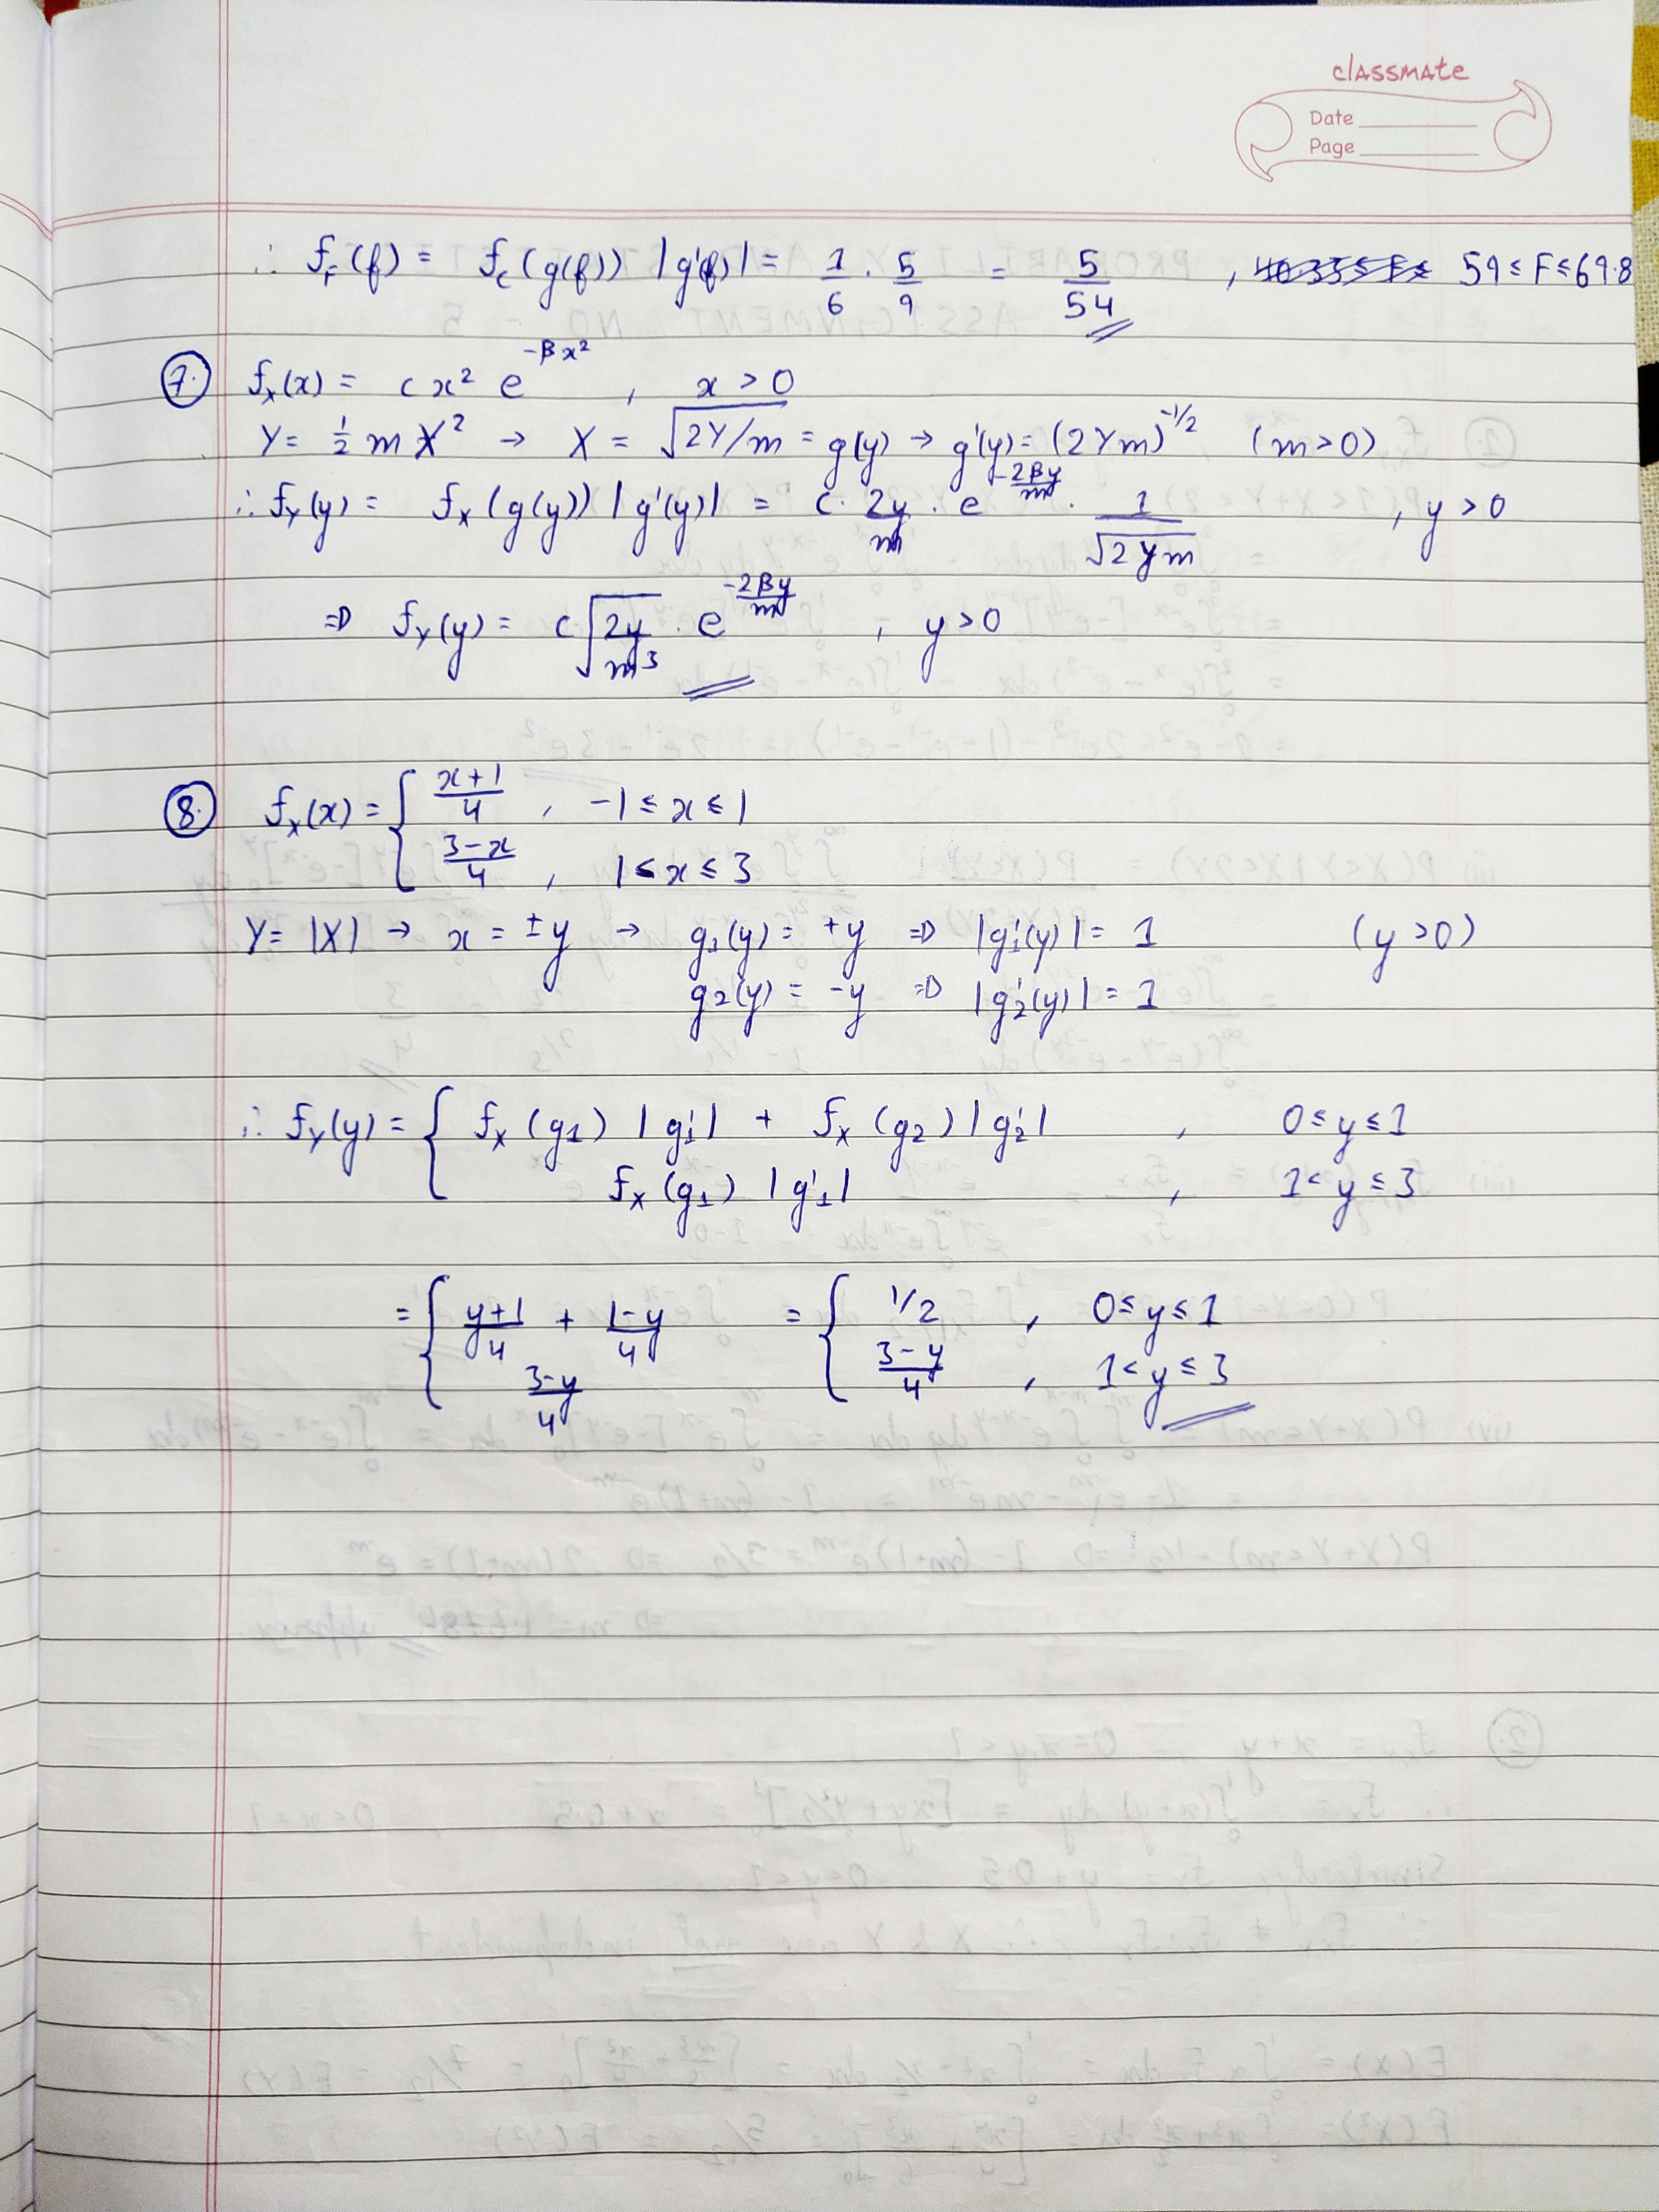 classmate
Date
Page
∴ f_F(f) = f_C(g(f)) |g'(f)| = 1/6 · 5/9 = 5/54 , 59 ≤ F ≤ 69.8
7. f_X(x) = c x² e^(-βx²) , x > 0
Y = ½ m X² → X = √(2Y/m) = g(y) → g'(y) = (2Ym)^(-1/2) (m > 0)
∴ f_Y(y) = f_X(g(y)) |g'(y)| = c · 2y/m · e^(-2βy/m) · 1/√(2ym) , y > 0
⇒ f_Y(y) = c √(2y/m³) · e^(-2βy/m) , y > 0
8. f_X(x) = { (x+1)/4 , -1 ≤ x ≤ 1
(3-x)/4 , 1 < x ≤ 3
Y = |X| → x = ±y → g₁(y) = +y ⇒ |g₁'(y)| = 1 (y > 0)
g₂(y) = -y ⇒ |g₂'(y)| = 1
∴ f_Y(y) = { f_X(g₁) |g₁'| + f_X(g₂) |g₂'| , 0 ≤ y ≤ 1
f_X(g₁) |g'₁| , 1 < y ≤ 3
= { (y+1)/4 + (1-y)/4 = { 1/2 , 0 ≤ y ≤ 1
(3-y)/4 (3-y)/4 , 1 < y ≤ 3